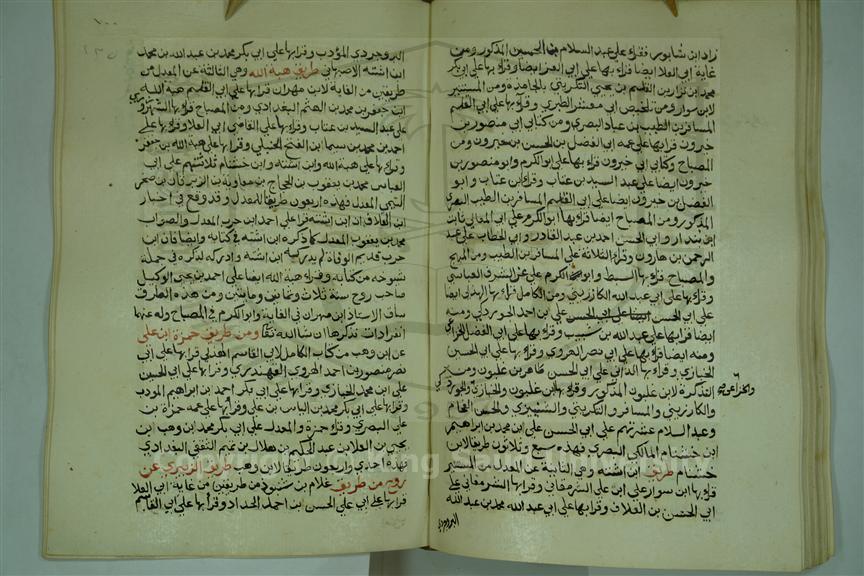 زاد ابن شابور فقراء على عبد السلام بن الحسين المذكور ومن
غاية ابي العلا ايضا قراء بها على ابي العز ايضا وقراء بها على ابي بكر
محمد بن نزار بن القسم بن يحيى التكريتي بالجامدة ومن المستنير
لابن سوار ومن تلخيص ابي معشر الطبري وقرآ بها على ابي القسم
المسافر بن الطيب بن عباد البصري ومن كتابي ابي منصور بن
خيرون قراء بها على عمه ابي الفضل بن الحسن بن خيرون ومن
المصباح وكتابي ابن خيرون قراء بها على ابو الكرم وابو منصور بن
خيرون ايضا على عبد السيد بن عتاب وقراء ابن عتاب وابو
الفضل بن خيرون ايضا على ابي القسم المسافر بن الطيب البصري
المذكور ومن المصباح ايضا قراء بها ابو الكرم على ابي المعالي ثابت
ابن بندار وابي الحسن احمد بن عبد القادر وابي الخطاب علي بن عبد
الرحمن بن هارون وقراء الثلاثة على المسافر بن الطيب ومن المبهج
والمصباح قراء بها السبط وابو الكرم على عز الشرف العباسي
وقراء بها على ابي عبد الله الكارزيني ومن الكامل قراء بها الهذلي ايضا
على ابي الحسن علي بن احمد الجوردكي ومنه
ايضا قراء بها على عبد الله بن شبيب وقراء بها على ابي الفضل الخزاعي
ومنه ايضا قراء بها على ابي نصر الهروي وقراء بها على ابي الحسين
الخبازي وقراء بها الداني على ابي الحسن طاهر بن غلبون ومن
التذكرة لابن غلبون المذكور وقراء بها ابن غلبون والخبازي
والخزاعي
والكارزيني والمسافر والتكريتي والششتري والحسن الفحام
وعبد السلام عشرتهم على ابي الحسن علي بن محمد بن ابراهيم
ابن خشنام المالكي البصري فهذه سبع وثلاثون طريقا لابن
خشنام طريق ابن اشته وهي الثانية عن المعدل من المستنير
قراء بها ابن سوار على ابي علي الشرمقاني وقراء بها الشرمقاني على
ابي الحسن بن العلاف وقراء بها على ابي عبد الله محمد بن عبد الله
البروجردي
البروجردي المؤدب وقراء بها على ابي بكر محمد بن عبد الله بن محمد
ابن اشته الاصبهاني طريق هبة الله وهي الثالثة عن المعدل من
طريقين من الغاية لابن مهران قراء بها على ابي القسم هبة الله
ابن جعفر بن محمد بن الهيثم البغدادي ومن المصباح قراء بها الشهرزوري
على عبد السيد بن عتاب وقراء بها على القاضي ابي العلا وقراء بها على
احمد بن محمد بن سيما ابن الفتح الحنبلي وقراء بها على هبة الله بن جعفر
وقراء بها على هبة الله وابن اشته وابن خشنام ثلاثتهم على ابي
العباس محمد بن يعقوب بن الحجاج بن معاوية بن الزبرقان بن صخر
التيمي المعدل فهذه اربعون طريقا للمعدل وقد وقع في اخبار
ابن العلاف ان ابن اشته قراء على احمد ابن حرب المعدل والصواب
محمد بن يعقوب المعدل كما ذكره ابن اشته في كتابه وايضا فان ابن
حرب قديم الوفاة لم يدركه ابن اشته ولو ادركه لذكره في جملة
شيوخه من كتابه وقراء هبة الله ايضا على احمد بن يحيى الوكيل
صاحب روح سنة ثلاث وثمانين ومائتين ومن هذه الطرق
ساق الاستاذ ابن مهران في الغاية وابو الكرم في المصباح وله عنها
انفرادات نذكرها ان شا الله تعا ومن طريق حمزة ابن علي
عن ابن وهب من كتاب الكامل لابي القاسم الهذلي قراء بها على ابي
نصر منصور بن احمد الهروي القهندزي وقراء بها على ابي الحسين
علي بن محمد الخبازي وقراء بها على ابي بكر احمد بن ابراهيم المؤدب
وقراء على ابي بكر محمد بن الياس بن علي وقراء بها على عمه حمزة بن
علي البصري وقراء حمزة والمعدل على ابي بكر محمد بن وهب ابن
يحيى بن العلا بن عبد الحكيم بن هلال بن تميم الثقفي البغدادي
فهذه احدى واربعون طريقا لابن وهب طريق الزبيري عن
روح من طريق غلام بن شنبوذ من طريقين من غاية ابي العلا
قراء بها على ابي علي الحسن بن احمد الحداد وقراء بها على ابي القاسم